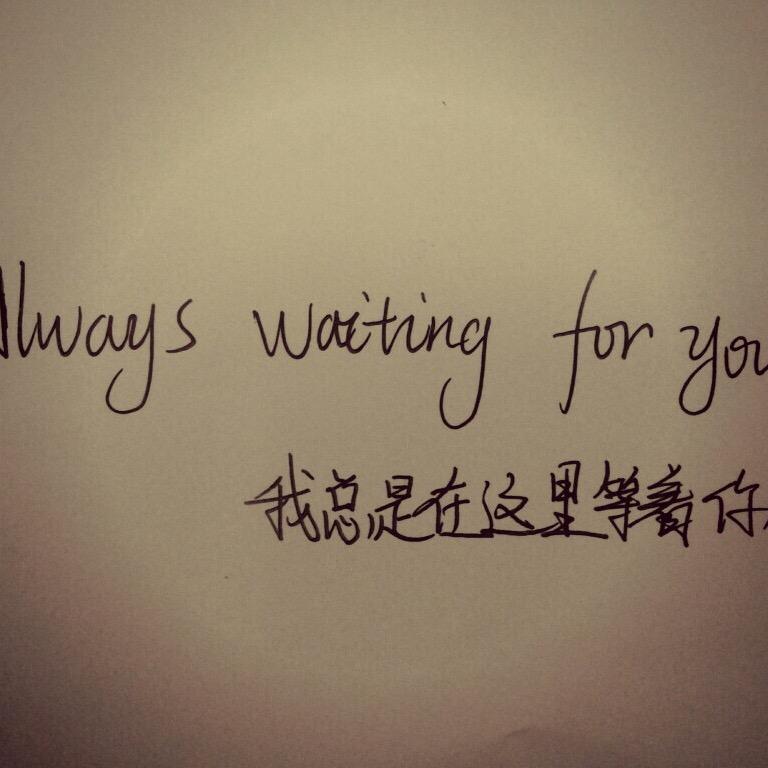 Always waiting for you
我总是在这里等着你